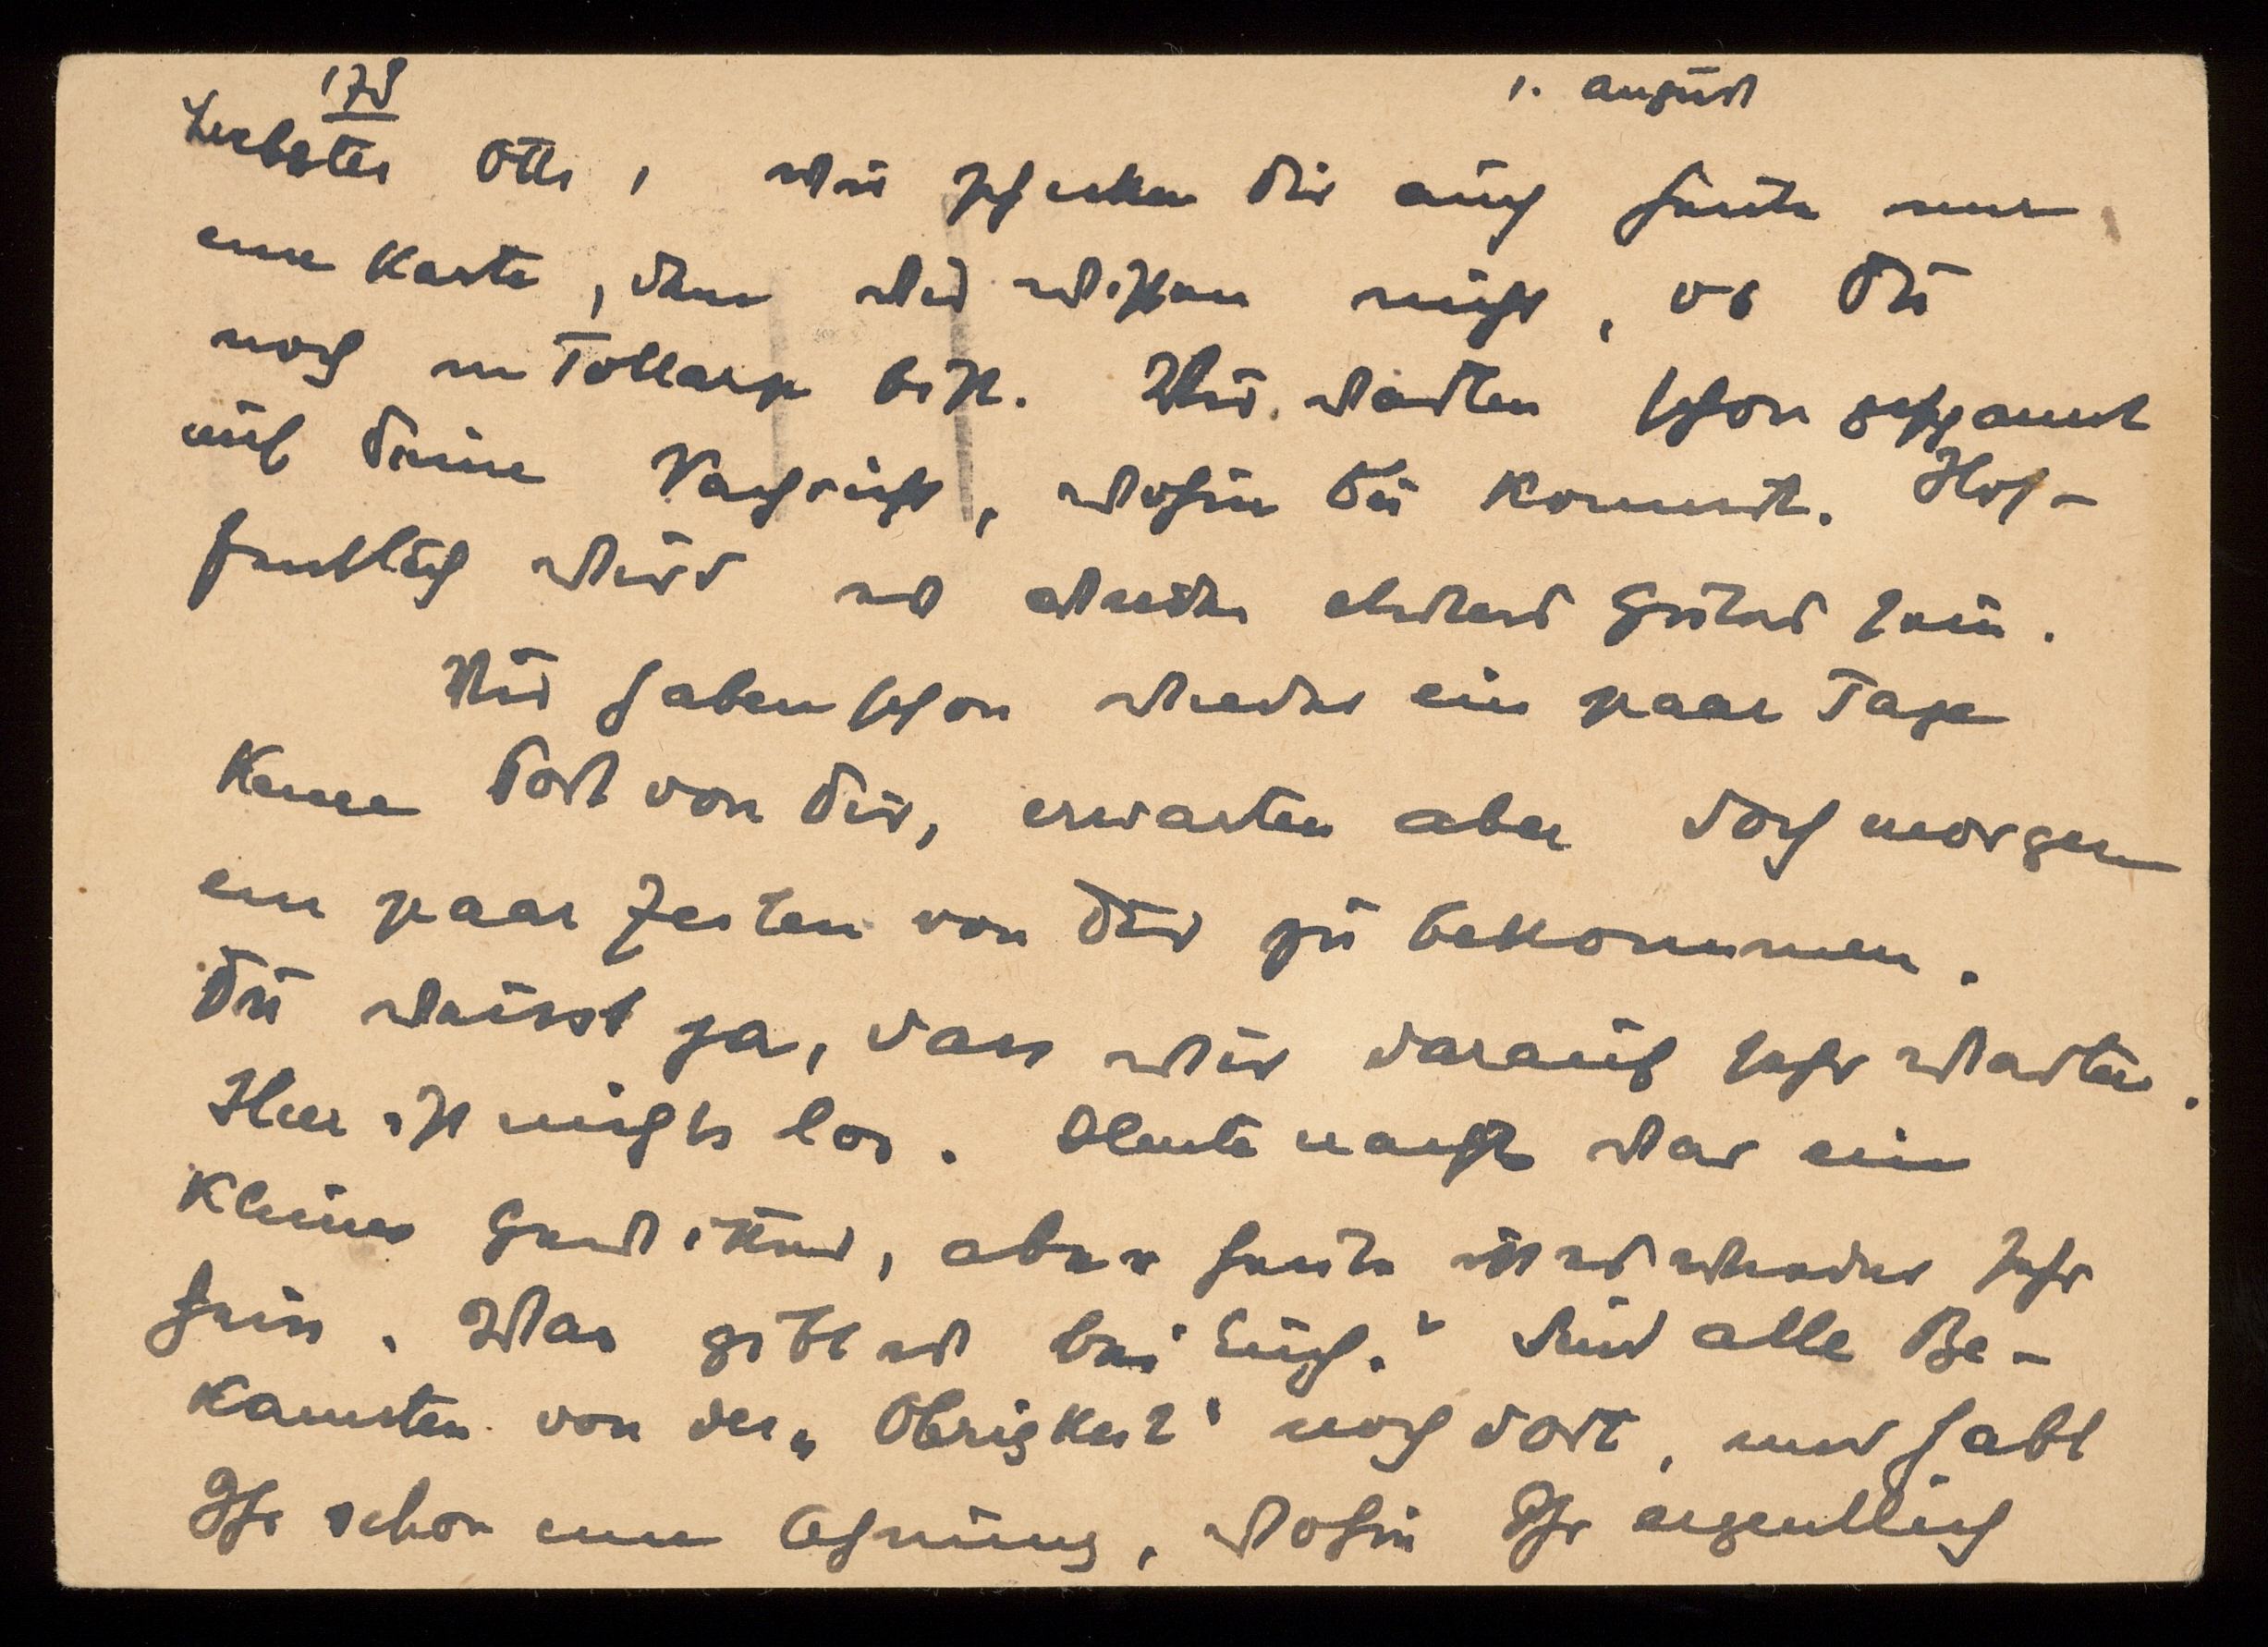 178
1. August
Liebster Otto, wir schicken dir auch heute nur
eine Karte, denn wir wissen nicht, ob du
noch in Tollarp bist. Wir warten schon gespannt
auf deine Nachricht, wohin du kommst. Hof-
fentlich wird es wieder etwas Gutes sein.
Wir haben schon wieder ein paar Tage
keine Post von dir, erwarten aber doch morgen
ein paar Zeilen von dir zu bekommen.
Du weisst ja, dass wir darauf sehr warten.
Hier ist nichts los. Heute nacht war ein
kleines Gewitter, aber heute ist es wieder sehr
fein. Was gibt es bei Euch? Sind alle Be-
kannten von der „Obrigkeit" noch dort, und habt
Ihr schon eine Ahnung, wohin Ihr eigentlich